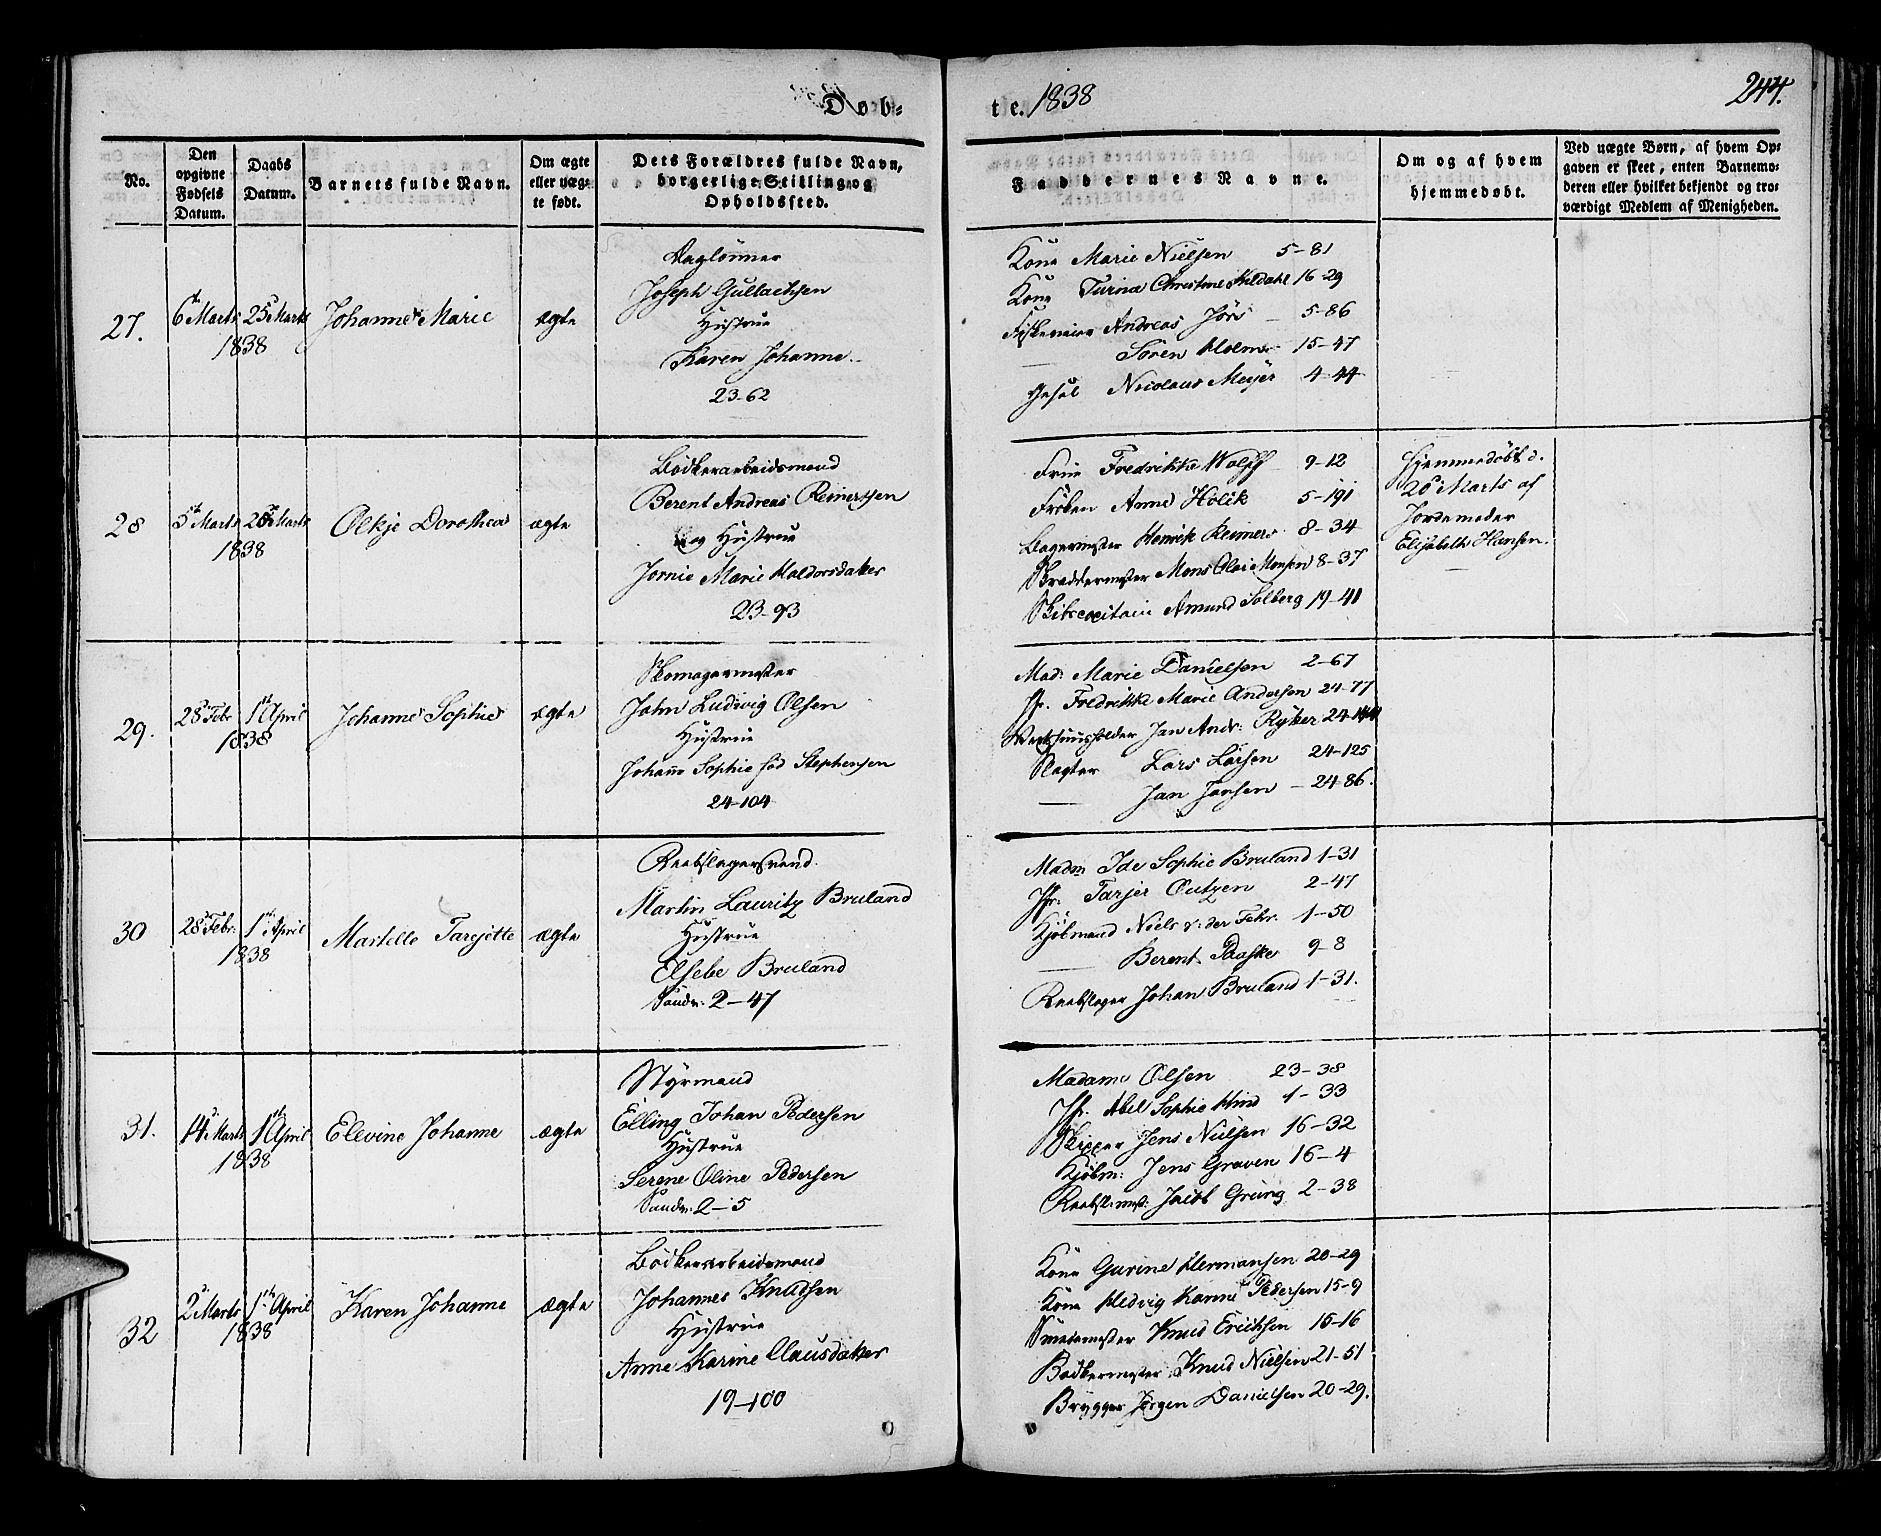 Døb-
te. 1838
244.
No.
Den opgivne Fødsels Datum.
Daabs Datum.
Barnets fulde Navn.
Om ægte eller uæg- te født.
Dets Forældres fulde Navn, borgerlige Stilling og Opholdssted.
Faddernes Navne.
Om og af hvem hjemmedøbt.
Ved uægte Børn, af hvem Op- gaven er skeet, enten Barnemo- deren eller hvilket bekjendt og tro- værdigt Medlem af Menigheden.
27.
6te Marts 25de Marts
1838
Johanne Marie
ægte
Daglønner
Joseph Gullachsen
Hustrue
Karen Johanne
23-62
Kone Marie Nielsen 5-81
Kone Turina Christine Kildahl 16-29
Fiskeveier Andreas Jörs 5-86
Sören Holm 15-47
Gesel Nicolaus Meyer 4-44
28
5te Marts 28de Marts
1838
Oelkje Dorothea
ægte
Bödkerarbeidsmand
Berent Andreas Reinertsen
og Hustrue
Jornie Marie Haldorsdatter
23-93
Frue Fredrikke Wolff 9-12
Fröken Anne Holck 5-191
Bagermester Henrik Reimers 8-34
Skreddermester Mons Olai Monsen 8-37
Skibscapitain Amund Solberg 19-41
Hjemmedöbt d.
20de Marts af
Jordemoder
Elisabeth Hansen.
29.
28de Febr 1ste April
1838
Johanne Sophie
ægte
Skomagermester
John Ludwig Olsen
Hustrue
Johane Sophie fød Stephensen
24-104
Mad: Marie Danielsen 2-67
Jfr. Fredrikke Marie Andersen 24-77
Værtshuusholder Jan Andr: Ryker 24-144
Slagter Lars Larsen 24-125
Jan Jansen 24-86.
30
28de Febr: 1ste April
1838
Martelle Tarjette
ægte
Reebslagersvend.
Martin Lauritz Bruland
Hustrue
Elsebe Bruland
Sandv: 2-47
Madm Ide Sophie Bruland 1-31
Jfr: Tarjer Outzen 2-47
Kjöbmand Niels v: der Fehr. 1-50
Berent Paaske 9-8
Reebslager Johan Bruland 1-31.
31.
14de Marts 1ste April
1838
Elevine Johanne
ægte
Styrmand
Elling Johan Pedersen
Hustrue
Serene Oline Pedersen
Sandv: 2-5
Madame Olsen 23-38
Jfr. Abel Sophie Hind 1-33
Skipper Jens Nielsen 16-32
Kjöbm: Jens Graven 16-4
Reebsl:mst: Jacob Grung 2-38
32
2den Marts 1ste April
1838
Karen Johanne
ægte
Bödkerarbeidsmand
Johannes Knudsen
Hustrue
Anne Karine Clausdatter
19-100
Kone Gurine Hermansen 20-29
Kone Hedvig Karine Pedersen 15-9
Smedemester Knud Ericksen 15-16
Bödkermester Knud Nielsen 21-51
Brygger Jørgen Danielsen 20-29.